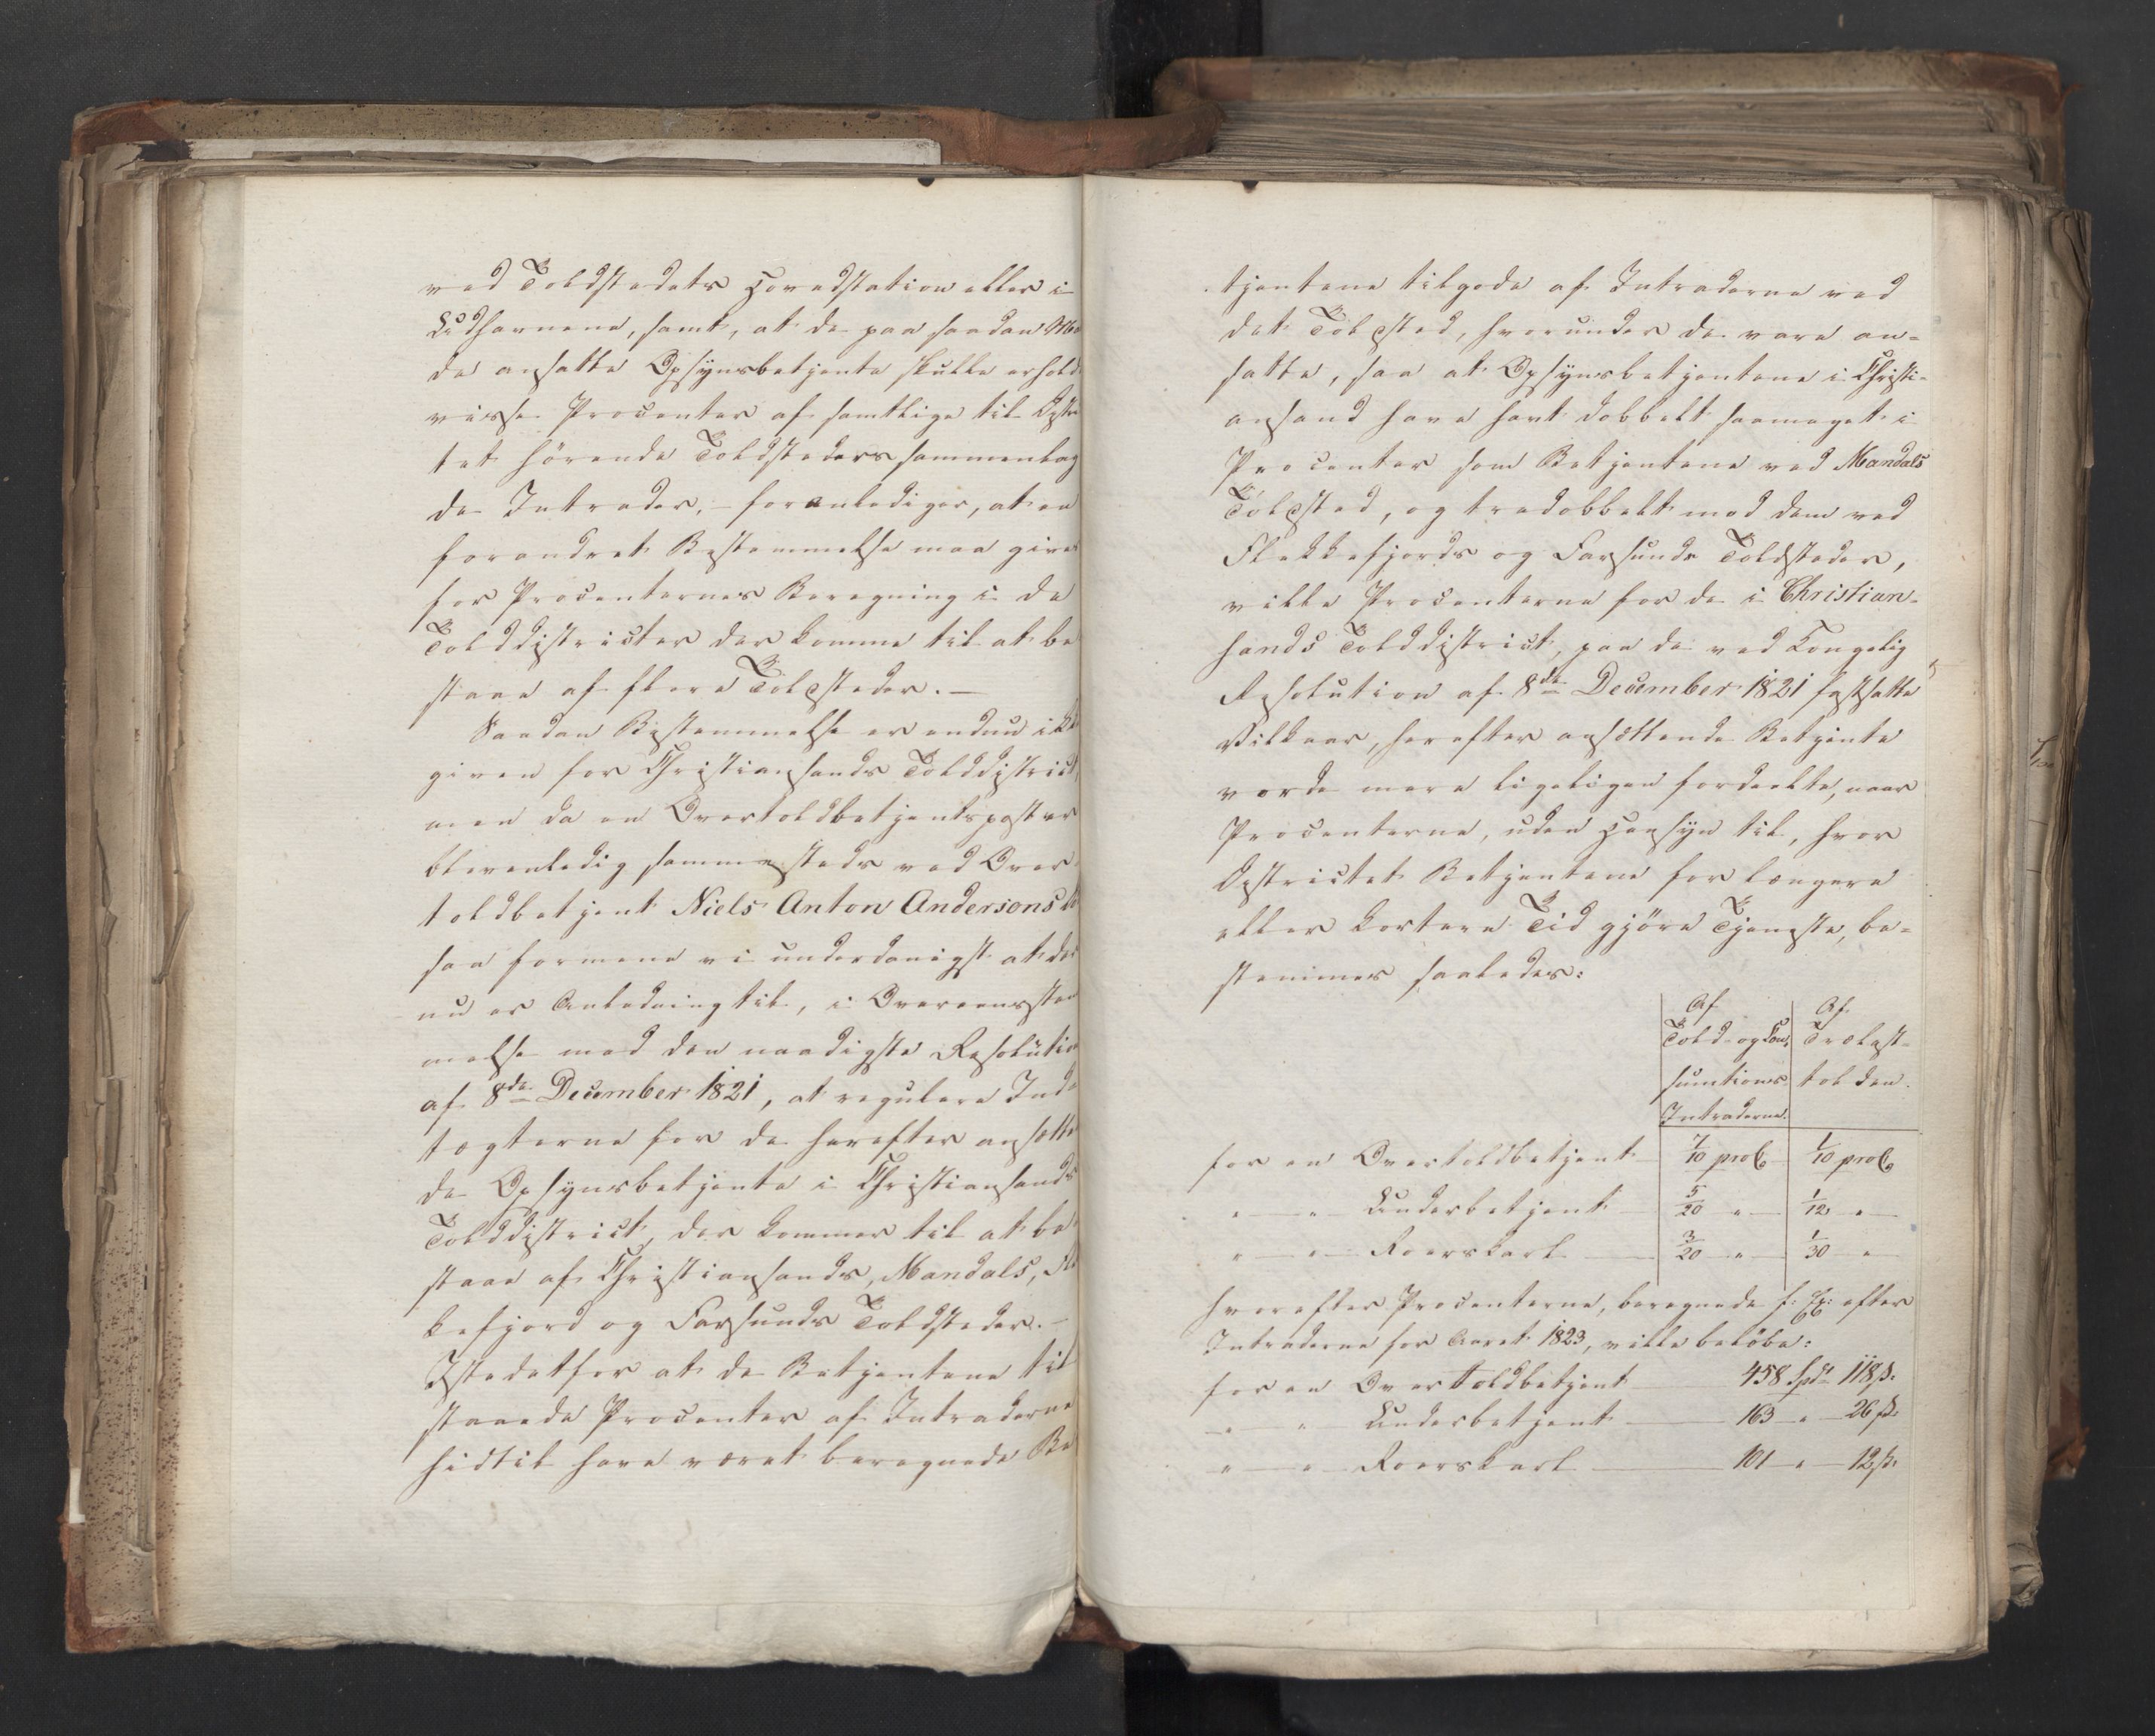 ved Toldstedets Hovedstation eller i
Udhavnene, samt, at de paa saadan Maa
de ansatte Opsynsbetjente skulle erholde
visse Procenter af samtlige til Distric
tet hörende Toldsteders sammenlag
de Intrader, – foranlediger, at en
forandret Bestemmelse maa gives
for Procenternes Beregning i de
Tolddistricter der komme til at be
staae af flere Toldsteder. –
Saadan Bestemmelse er endnu ikke
given for Christiansands Tolddistrict,
men da en Overtoldbetjentspost er
bleven ledig sammesteds ved Over
toldbetjent Niels Anton Andersons
saa formene vi underdanigst at der
nu er Anledning til, i Overeensstem
melse med den naadigste Resolution
af 8de December 1821, at regulere Ind
tægterne for de herefter ansætten
de Opsynsbetjente i Christiansands
Tolddistrict, der kommer til at be
staae af Christiansands, Mandals, Flek
kefjord og Farsunds Toldsteder. –
Istedetfor at de Betjentene til
staaede Procenter af Intraderne
hidtil have været beregnede Be
tjentene tilgode af Intraderne ved
det Toldsted, hvorunder de vare an-
satte, saa at Opsynsbetjentene i Christi-
ansand have havt dobbelt saameget i
Procenter som Betjentene ved Mandals
Toldsted, og tredobbelt mod dem ved
Flekkefjords og Farsunds Toldsteder,
ville Procenterne for de i Christian-
sands Tolddistrict, paa de ved Kongelig
Resolution af 8de December 1821 fastsatte
Vilkaar, herefter ansættende Betjente
vorde mere ligeligen fordeelte, naar
Procenterne, uden Hensyn til, hvor
Districtet Betjentene for længere
eller kortere Tid gjöre Tjeneste, be-
stemmes saaledes:
Af Af
Told- og Con- Trælast-
sumtions tolden.
Intraderne.
for en Overtoldbetjent 7/10 proC. 1/10 proC.
" — " Underbetjent 5/20 " 1/12 "
" — " Roerskarl 3/20 " 1/30 "
hvorefter Procenterne, beregnede f: Ex: efter
Intraderne for Aaret 1823, ville belöbe:
for en Overtoldbetjent 458 Spd. 118 ß.
" — " Underbetjent 163 " 26 ß.
" — " Roerskarl 101 " 12 ß.